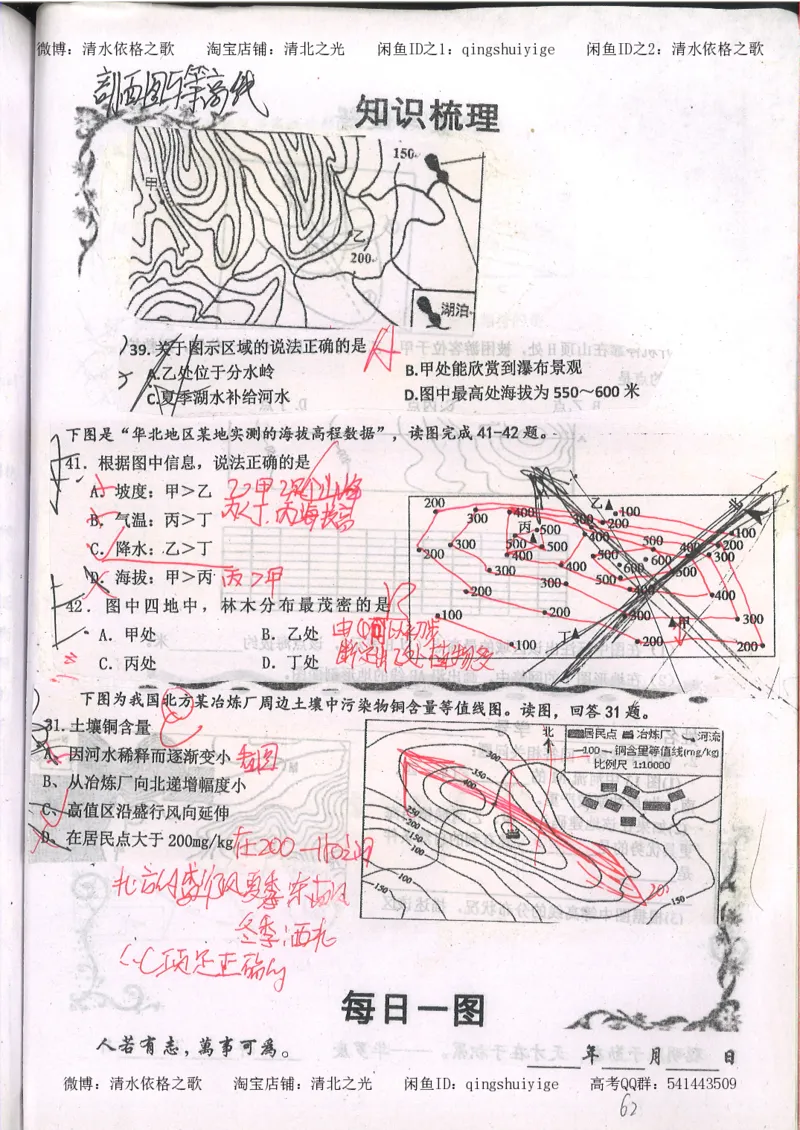 微博：清水依格之歌 淘宝店铺：清北之光 闲鱼ID之1：qingshuiyige 闲鱼ID之2：清水依格之歌
剖面图与等高线
知识梳理
150
甲
乙
200
湖泊
39. 关于图示区域的说法正确的是 A
A.乙处位于分水岭 B.甲处能欣赏到瀑布景观
C.夏季湖水补给河水 D.图中最高处海拔为 550～600 米
下图是“华北地区某地实测的海拔高程数据”，读图完成 41-42 题。
41．根据图中信息，说法正确的是
A．坡度：甲＞乙
B．气温：丙＞丁 丙<丁 丙海拔高
C．降水：乙＞丁
D．海拔：甲＞丙 丙>甲
42．图中四地中，林木分布最茂密的是
A．甲处 B．乙处
C．丙处 D．丁处
200 300 400 乙 100 北
300 200
丙 500 400 100
300 500 500 500 400 200
200 400 500 600 300
300 400 600 500
300 500 400 400
200
100 200 300 甲 300
丁
100 200 200
下图为我国北方某冶炼厂周边土壤中污染物铜含量等值线图。读图，回答 31 题。
31.土壤铜含量 C
A、因河水稀释而逐渐变小 看图
B、从冶炼厂向北递增幅度小
C、高值区沿盛行风向延伸
D、在居民点大于 200mg/kg 在200-150之间
北 居民点 冶炼厂 河流
100 铜含量等值线(mg/kg)
比例尺 1:10000
300
350
400
250
200
150
100
100
150
150
北方A盛行风夏季东南风
冬季西北
∴C项是正确的
每日一图
人若有志，萬事可為。
年 月 日
微博：清水依格之歌 淘宝店铺：清北之光 闲鱼ID：qingshuiyige 高考QQ群：541443509
62